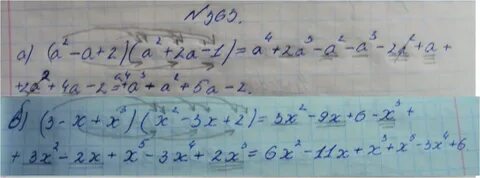 №363.
а) (a²-a+2)(a²+2a-1)=a⁴+2a³-a²-a³-2a²+a+
+2a²+4a-2=a⁴+a³+a²+5a-2.
б) (3-x+x³)(x²-3x+2)=3x²-9x+6-x³+
+3x²-2x+x⁵-3x⁴+2x³=6x²-11x+x³+x⁵-3x⁴+6